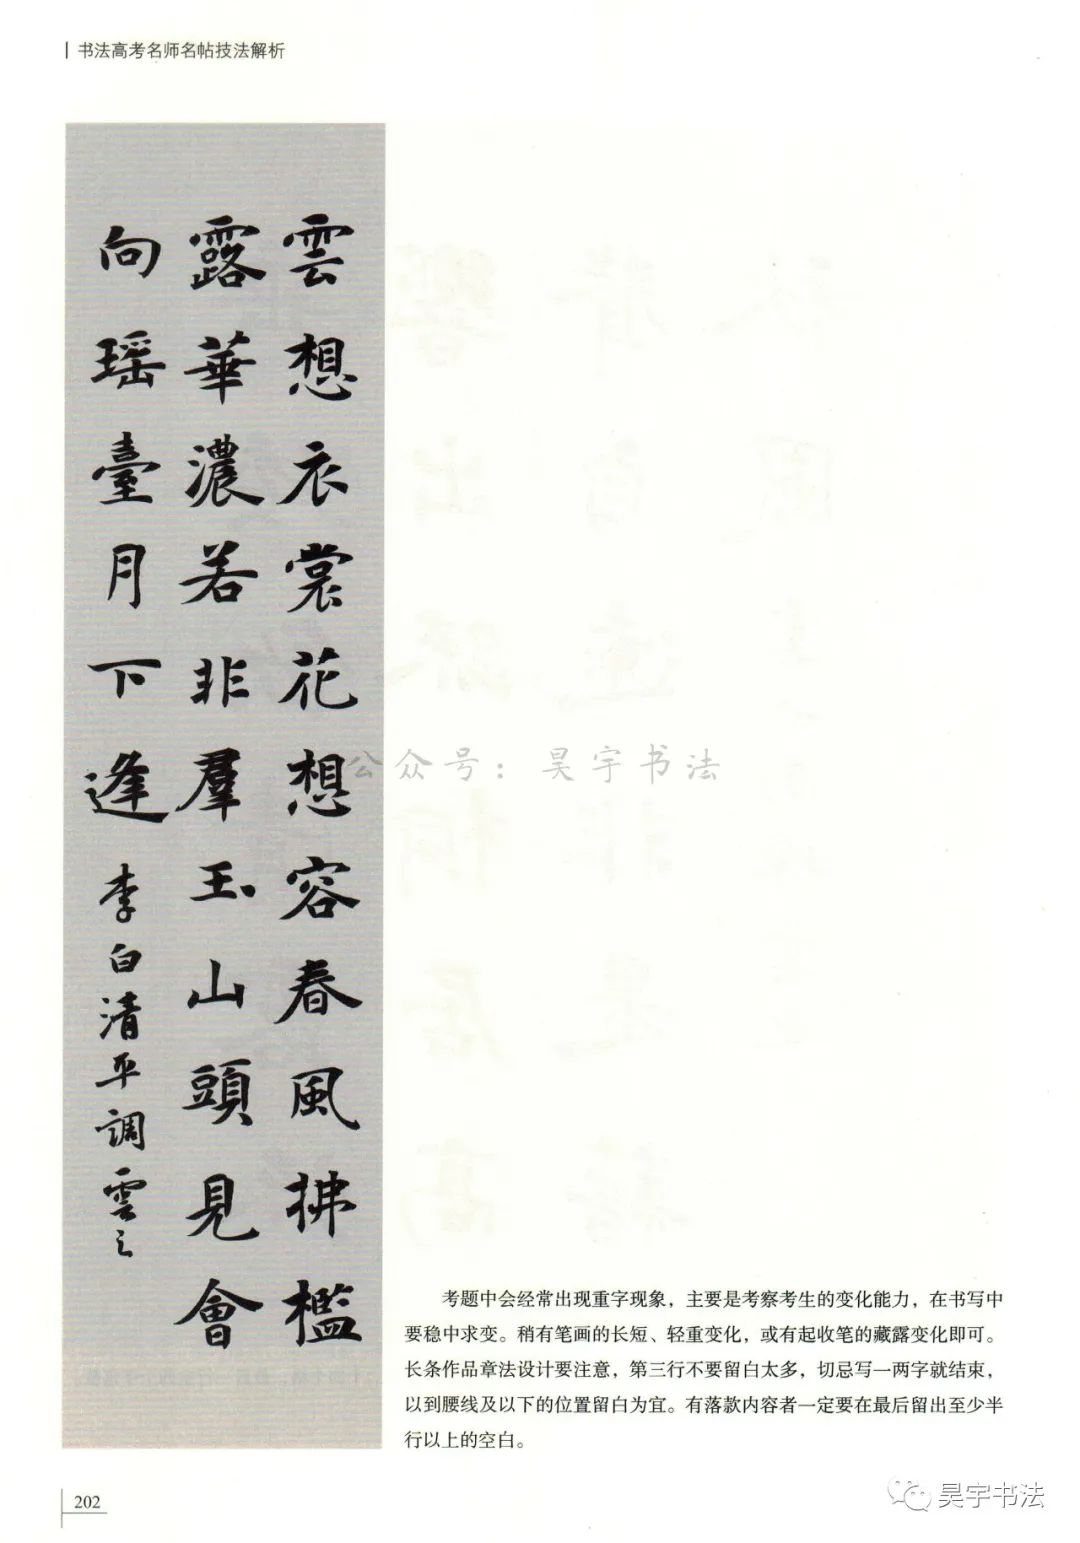 书法高考名师名帖技法解析
雲想衣裳花想容春風拂檻
露華濃若非羣玉山頭見會
向瑶臺月下逢 李白清平調雲之
公众号：昊宇书法
考题中会经常出现重字现象，主要是考察考生的变化能力，在书写中
要稳中求变。稍有笔画的长短、轻重变化，或有起收笔的藏露变化即可。
长条作品章法设计要注意，第三行不要留白太多，切忌写一两字就结束，
以到腰线及以下的位置留白为宜。有落款内容者一定要在最后留出至少半
行以上的空白。
202
昊宇书法